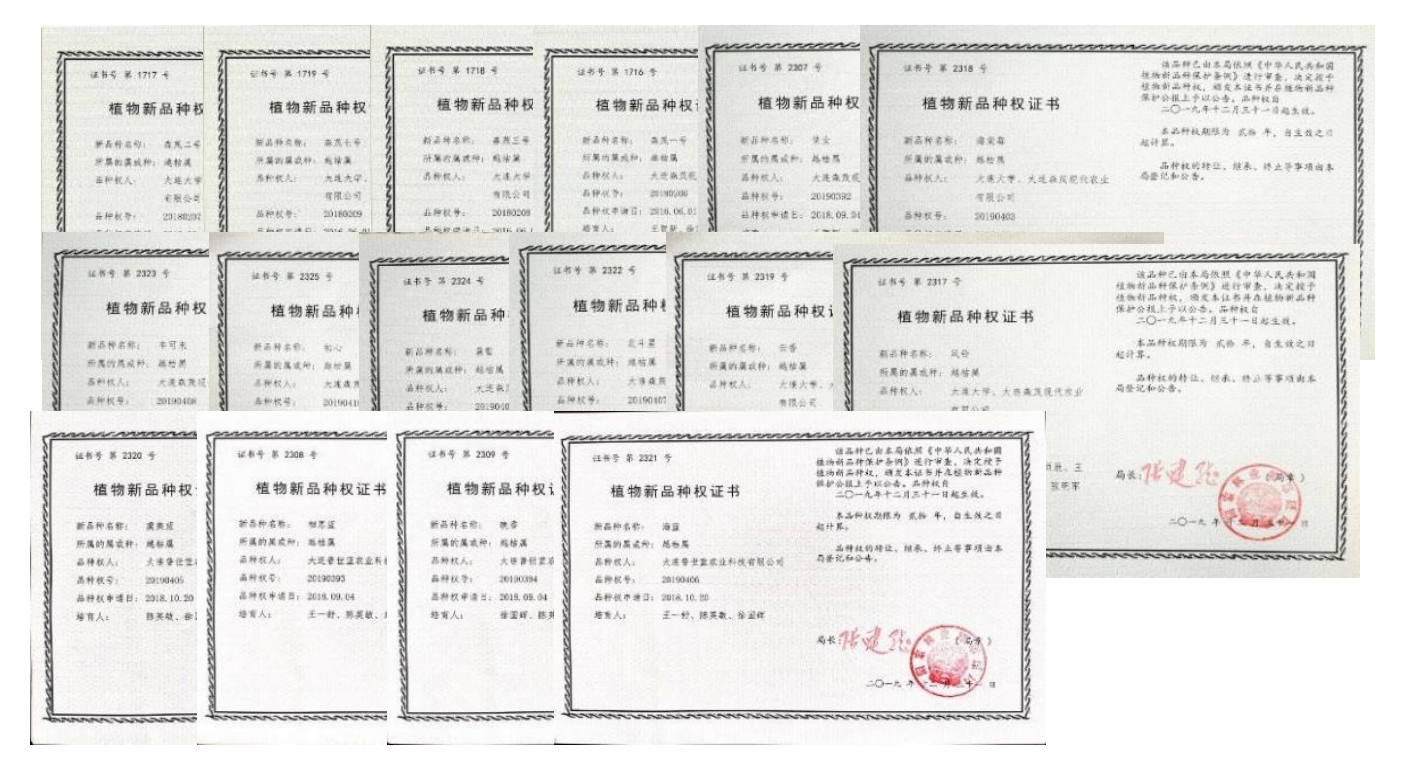 证书号 第 1717 号
植物新品种权
新品种名称： 森茂二号
所属的属或种： 越桔属
品种权人： 大连大学
有限公司
品种权号： 20180207
证书号 第 1719 号
植物新品种权
新品种名称： 森茂七号
所属的属或种： 越桔属
品种权人： 大连大学、
有限公司
品种权号： 20180209
证书号 第 1718 号
植物新品种权
新品种名称： 森茂三号
所属的属或种： 越桔属
品种权人： 大连大学
有限公司
品种权号： 20180208
证书号 第 1716 号
植物新品种权
新品种名称： 森茂一号
所属的属或种： 越桔属
品种权人： 大连森茂现
品种权号： 20180206
品种权申请日： 2016.06.01
证书号 第 2307 号
植物新品种权
新品种名称：
所属的属或种： 越桔属
品种权人： 大连森茂现
品种权号： 20190392
品种权申请日： 2018.09.04
证书号 第 2318 号
植物新品种权证书
新品种名称：
所属的属或种： 越桔属
品种权人： 大连大学、大连森茂现代农业
有限公司
品种权号： 20190403
该品种已由本局依照《中华人民共和国
植物新品种保护条例》进行审查，决定授予
植物新品种权，颁发本证书并在植物新品种
保护公报上予以公告。品种权自
二〇一九年十二月三十一日起生效。
本品种权期限为 贰拾 年，自生效之日
起计算。
品种权的转让、继承、终止等事项由本
局登记和公告。
证书号 第 2323 号
植物新品种权
新品种名称：
所属的属或种： 越桔属
品种权人： 大连森茂现
品种权号： 20190408
证书号 第 2325 号
植物新品种
新品种名称： 初心
所属的属或种： 越桔属
品种权人： 大连森茂
品种权号：
证书号 第 2324 号
植物新品种
新品种名称：
所属的属或种： 越桔属
品种权人： 大连森茂
品种权号：
证书号 第 2322 号
植物新品种
新品种名称： 北斗星
所属的属或种： 越桔属
品种权人： 大连森茂
品种权号： 20190407
证书号 第 2319 号
植物新品种权
新品种名称： 云香
所属的属或种： 越桔属
品种权人： 大连大学、
有限公司
证书号 第 2317 号
植物新品种权证书
新品种名称： 风铃
所属的属或种： 越桔属
品种权人： 大连大学、大连森茂现代农业
该品种已由本局依照《中华人民共和国
植物新品种保护条例》进行审查，决定授予
植物新品种权，颁发本证书并在植物新品种
保护公报上予以公告。品种权自
二〇一九年十二月三十一日起生效。
本品种权期限为 贰拾 年，自生效之日
起计算。
品种权的转让、继承、终止等事项由本
局登记和公告。
局长：
（局章）
证书号 第 2320 号
植物新品种权
新品种名称：
所属的属或种： 越桔属
品种权人： 大连普世蓝
品种权号： 20190405
品种权申请日： 2018.10.20
培育人： 陈英敏、徐
证书号 第 2308 号
植物新品种权证书
新品种名称： 相思蓝
所属的属或种： 越桔属
品种权人： 大连普世蓝农业科
品种权号： 20190393
品种权申请日： 2018.09.04
培育人： 王一舒、陈英敏、
证书号 第 2309 号
植物新品种权
新品种名称： 晚香
所属的属或种： 越桔属
品种权人： 大连普世蓝农
品种权号： 20190394
品种权申请日： 2018.09.04
培育人： 徐国辉、陈英
证书号 第 2321 号
植物新品种权证书
新品种名称： 海蓝
所属的属或种： 越桔属
品种权人： 大连普世蓝农业科技有限公司
品种权号： 20190406
品种权申请日： 2018.10.20
培育人： 王一舒、陈英敏、徐国辉
该品种已由本局依照《中华人民共和国
植物新品种保护条例》进行审查，决定授予
植物新品种权，颁发本证书并在植物新品种
保护公报上予以公告。品种权自
二〇一九年十二月三十一日起生效。
本品种权期限为 贰拾 年，自生效之日
起计算。
品种权的转让、继承、终止等事项由本
局登记和公告。
局长：
（局章）
二〇一九 年 十二 月 三十一 日